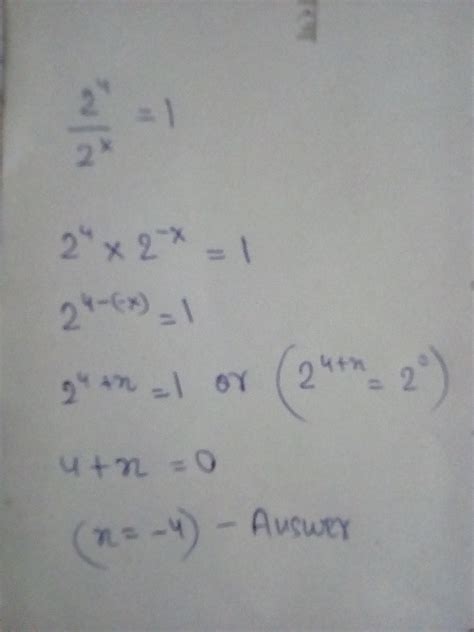 2⁴/2ˣ = 1
2⁴ × 2⁻ˣ = 1
2⁴⁻⁽⁻ˣ⁾ = 1
2⁴⁺ⁿ = 1 or (2⁴⁺ⁿ = 2⁰)
4 + n = 0
(n = -4) - Answer